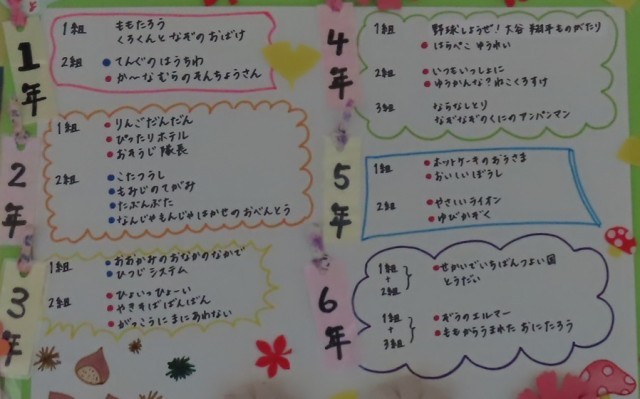 1年
1組
ももたろう
くろくんとなぞのおばけ
2組
てんぐのはうちわ
か〜なむらのそんちょうさん
2年
1組
りんごだんだん
ぴったりホテル
おそうじ隊長
2組
こたつうし
もみじのてがみ
たぷんぷた
なんじゃもんじゃはかせのおべんとう
3年
1組
おおかみのおなかのなかで
ひつじシステム
2組
ひょいっひょーい
やきそばばんばん
がっこうにまにあわない
4年
1組
野球しようぜ!大谷翔平ものがたり
はらぺこゆうれい
2組
いつもいっしょに
ゆうかんな?ねこくろすけ
3組
ならなしとり
なぞなぞのくにのアンパンマン
5年
1組
ホットケーキのおうさま
おいしいぼうし
2組
やさしいライオン
ゆびかぞく
6年
1組
+
2組
せかいでいちばんつよい国
とうだい
1組
+
3組
ぞうのエルマー
ももからうまれたおにたろう